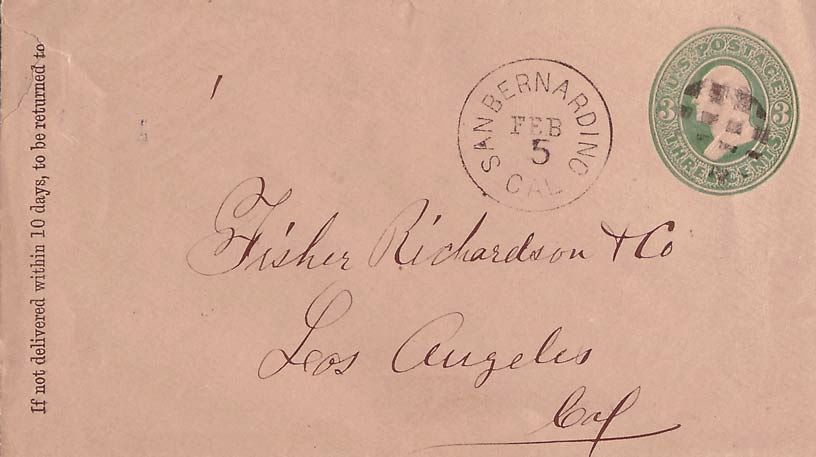 If not delivered within 10 days, to be returned to
SAN BERNARDINO
FEB
5
CAL
U.S. POSTAGE
3 3
THREE CENTS
Fisher Richardson & Co
Los Angeles
Cal